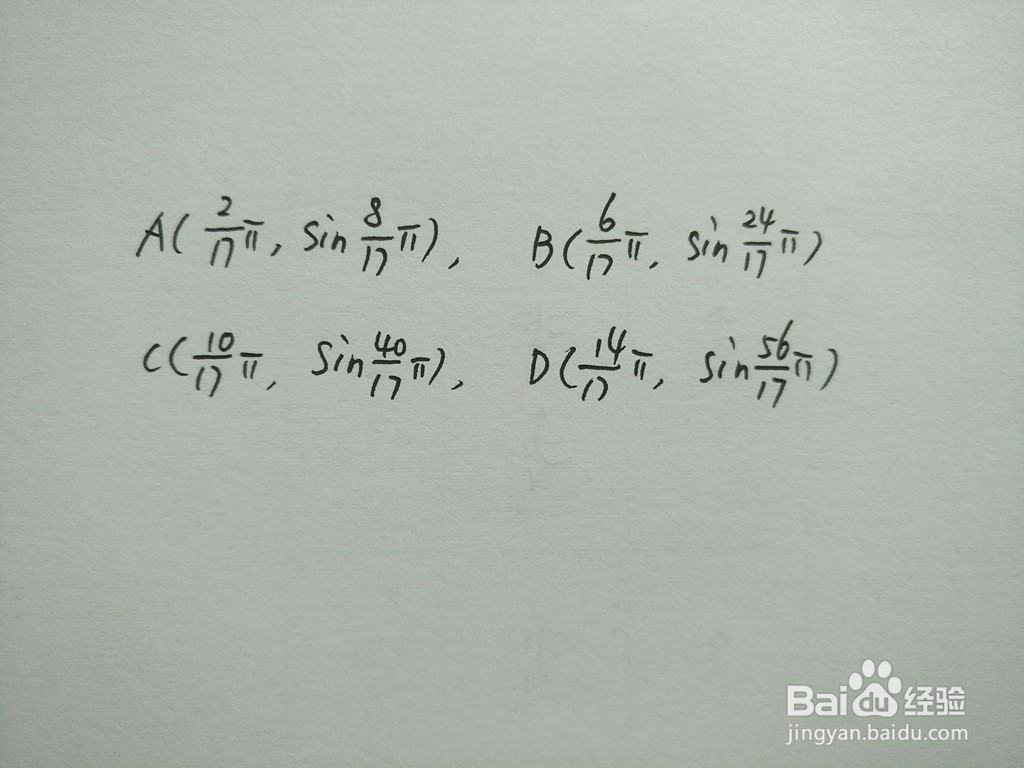 A(2/17 π, sin 8/17 π), B(6/17 π, sin 24/17 π)
C(10/17 π, sin 40/17 π), D(14/17 π, sin 56/17 π)
Baidu经验
jingyan.baidu.com